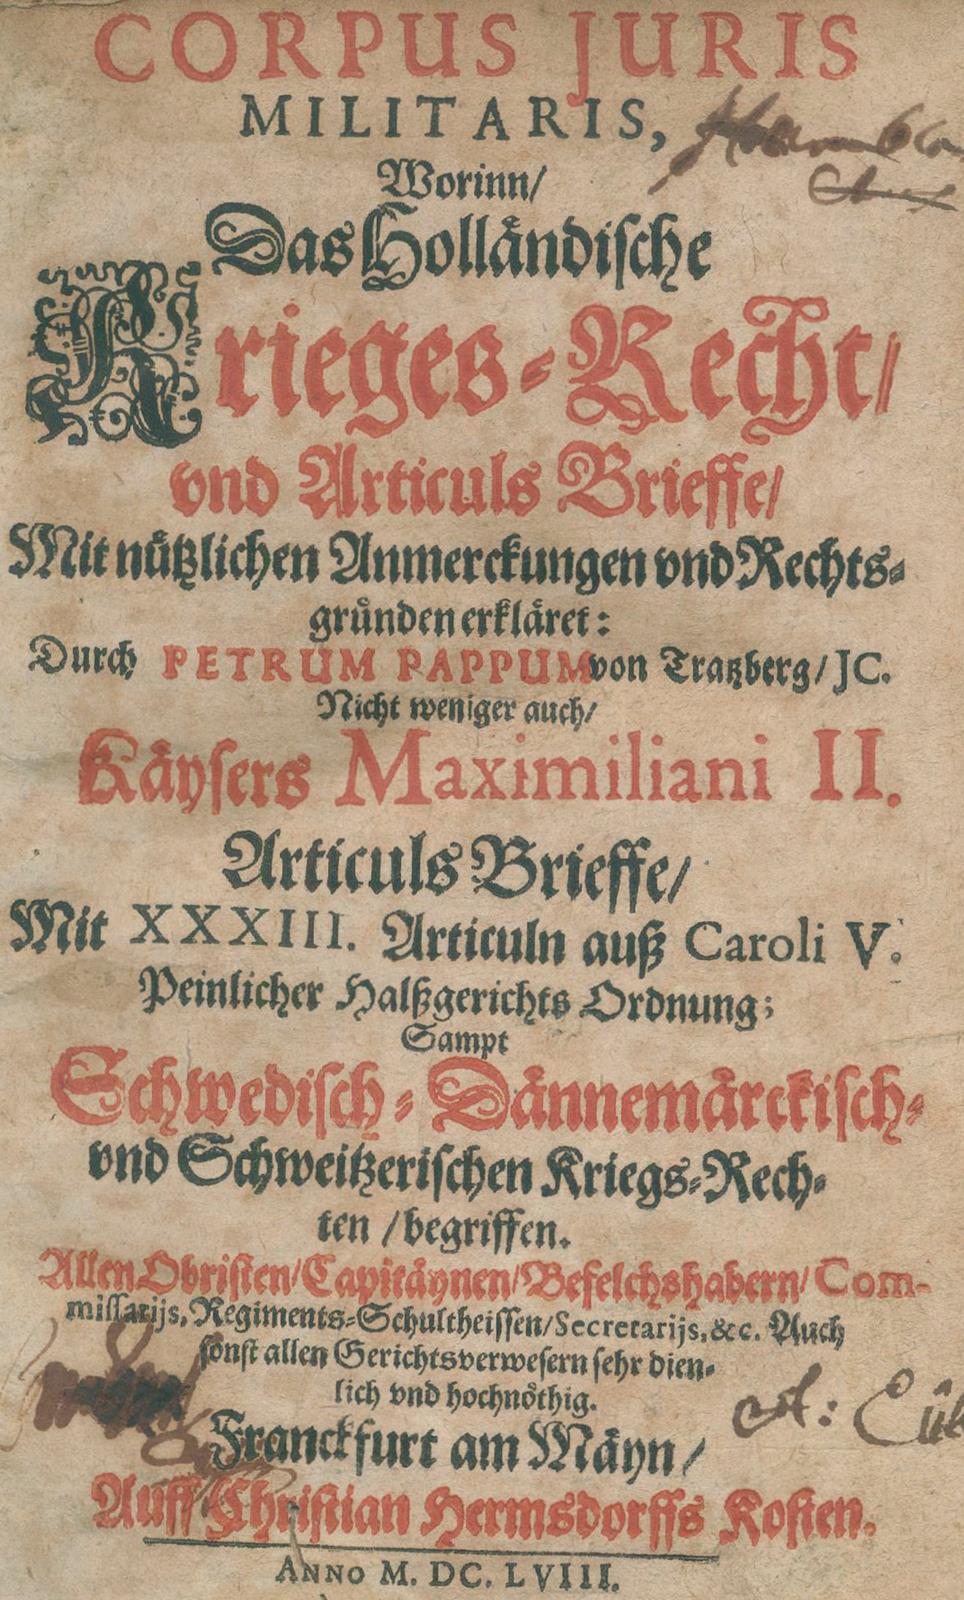 CORPUS JURIS
MILITARIS,
Worinn/
Das Holländische
Krieges-Recht/
vnd Articuls Brieffe/
Mit nützlichen Anmerckungen vnd Rechts-
gründen erkläret:
Durch PETRUM PAPPUM von Tratzberg/ JC.
Nicht weniger auch/
Käysers Maximiliani II.
Articuls Brieffe/
Mit XXXIII. Articuln auß Caroli V.
Peinlicher Halßgerichts Ordnung;
Sampt
Schwedisch-Dännemärckisch-
vnd Schweitzerischen Kriegs-Rech-
ten / begriffen.
Allen Obristen/ Capitäynen/ Befelchshabern/ Com-
missarijs, Regiments-Schultheissen/ Secretarijs, &c. Auch
sonst allen Gerichtsverwesern sehr dien-
lich vnd hochnöthig.
Franckfurt am Mäyn/
Auff Christian Hermsdorffs Kosten.
ANNO M. DC. LVIII.